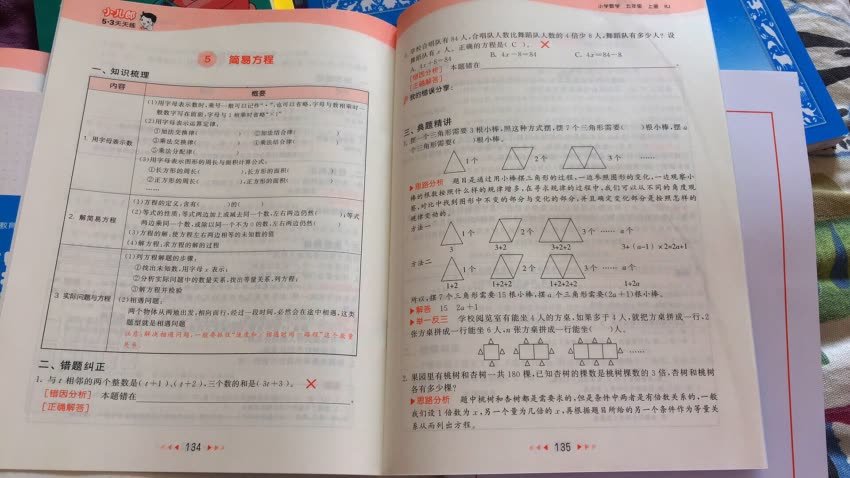 小儿郎
5·3天天练
5 简易方程
一、知识梳理
内容
概要
1. 用字母表示数
(1)用字母表示数时,乘号一般可以记作“·”,也可以省略,字母与数相乘时
般数字写在前面,字母与1相乘时省略“×1”
(2)用字母表示运算定律:
①加法交换律( ) ②加法结合律( )
③乘法交换律( ) ④乘法结合律( )
⑤乘法分配律( )
(3)用字母表示图形的周长与面积计算公式:
①长方形的周长( ),长方形的面积( )
②正方形的周长( ),正方形的面积( )
……
2. 解简易方程
(1)方程的定义,含有( )的( )
(2)等式的性质:等式两边加上或减去同一个数,左右两边仍然( );等式
两边乘同一个数,或除以同一个不为0的数,左右两边仍然( )
(3)方程的解:使方程左右两边相等的未知数的值
(4)解方程:求方程的解的过程
3 实际问题与方程
(1)列方程解题的步骤:
①找出未知数,用字母x表示;
②分析实际问题中的数量关系,找出等量关系,列方程;
③解方程并检验
(2)相遇问题:
两个物体从两地出发,相向而行,经过一段时间,必然会在途中相遇,这类
题型就是相遇问题
注意:解决相遇问题,一般要抓住“速度和×相遇时间=路程”这个数量
关系
二、错题纠正
1. 与t相邻的两个整数是(t+1),(t+2),三个数的和是(3t+3)。 ×
[错因分析] 本题错在
[正确解答]
134
小学数学 五年级 上册 RJ
学校合唱队有84人,合唱队人数比舞蹈队人数的4倍少8人,舞蹈队有多少人?设
舞蹈队有x人,正确的方程是( C )。 ×
A. 4x+8=84 B. 4x-8=84 C. 4x=84-8
[错因分析] 本题错在
[正确解答]
我的错误分享:
三、典题精讲
1. 摆一个三角形需要3根小棒,照这种方式摆,摆7个三角形需要( )根小棒,摆a
个三角形需要( )根小棒。
1个 2个 3个 ……
▶思路分析 题目是通过用小棒摆三角形的过程,一边参照图形的变化,一边观察小
棒的根数按照什么样的规律增多,在寻求规律的过程中,我们可以从不同的角度观
察,对比中找到图形中不变的部分与变化的部分,并且确定变化部分是按照怎样的
规律变动的。
方法一
1个 2个 3个 …… a个
3 3+2 3+2+2 3+(a-1)×2=2a+1
方法二
1个 2个 3个 …… a个
1+2 1+2+2 1+2+2+2 1+2a
所以,摆7个三角形需要15根小棒,摆a个三角形需要(2a+1)根小棒。
▶解答 15 2a+1
▶举一反三 学校阅览室有能坐4人的方桌,如果多于4人,就把方桌拼成一行,2
张方桌拼成一行能坐6人,n张方桌拼成一行能坐( )人。
……
2. 果园里有桃树和杏树一共180棵,已知杏树的棵数是桃树棵数的3倍,杏树和桃树
各有多少棵?
▶思路分析 题中桃树和杏树都是需要求的,但是条件中两者是有倍数关系的,一般
我们设1倍数为x,另一个量为几倍的x,再根据题目所给的另一个条件作为等量关
系从而列出方程。
135